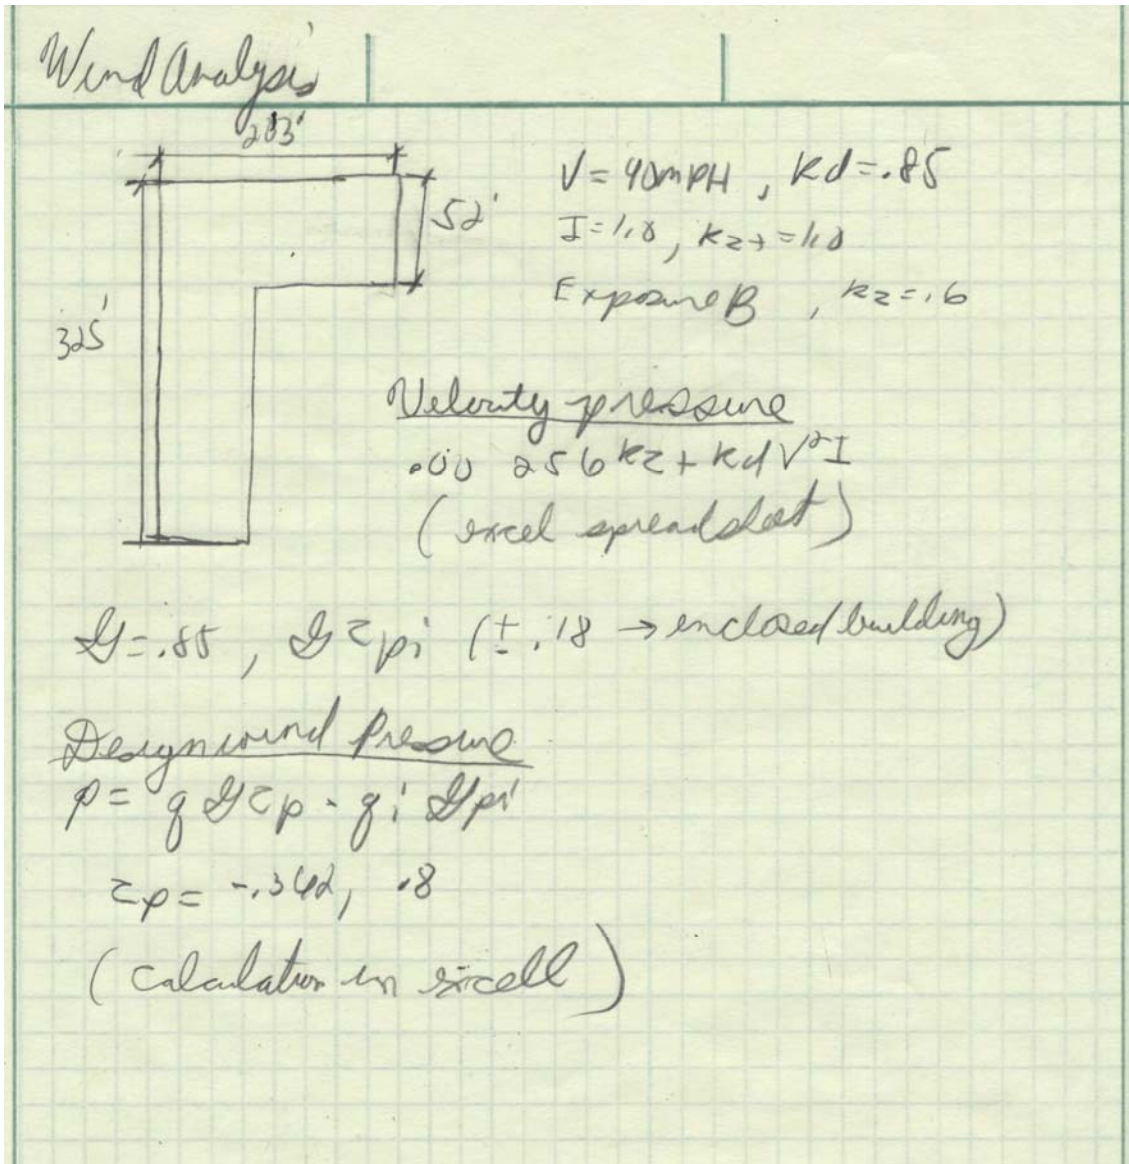 Wind Analysis
203'
52'
325'
V = 90mPH , Kd = .85
I = 1.0 , Kzt = 1.0
Exposure B , kz = .6
Velocity pressure
.00 256 kzt kd V²I
(excel spreadsheet)
G = .85 , GCpi (± .18 → enclosed building)
Design wind Pressure
p = q GCp - qi Gpi
Cp = -.342, .8
(calculation in excell)